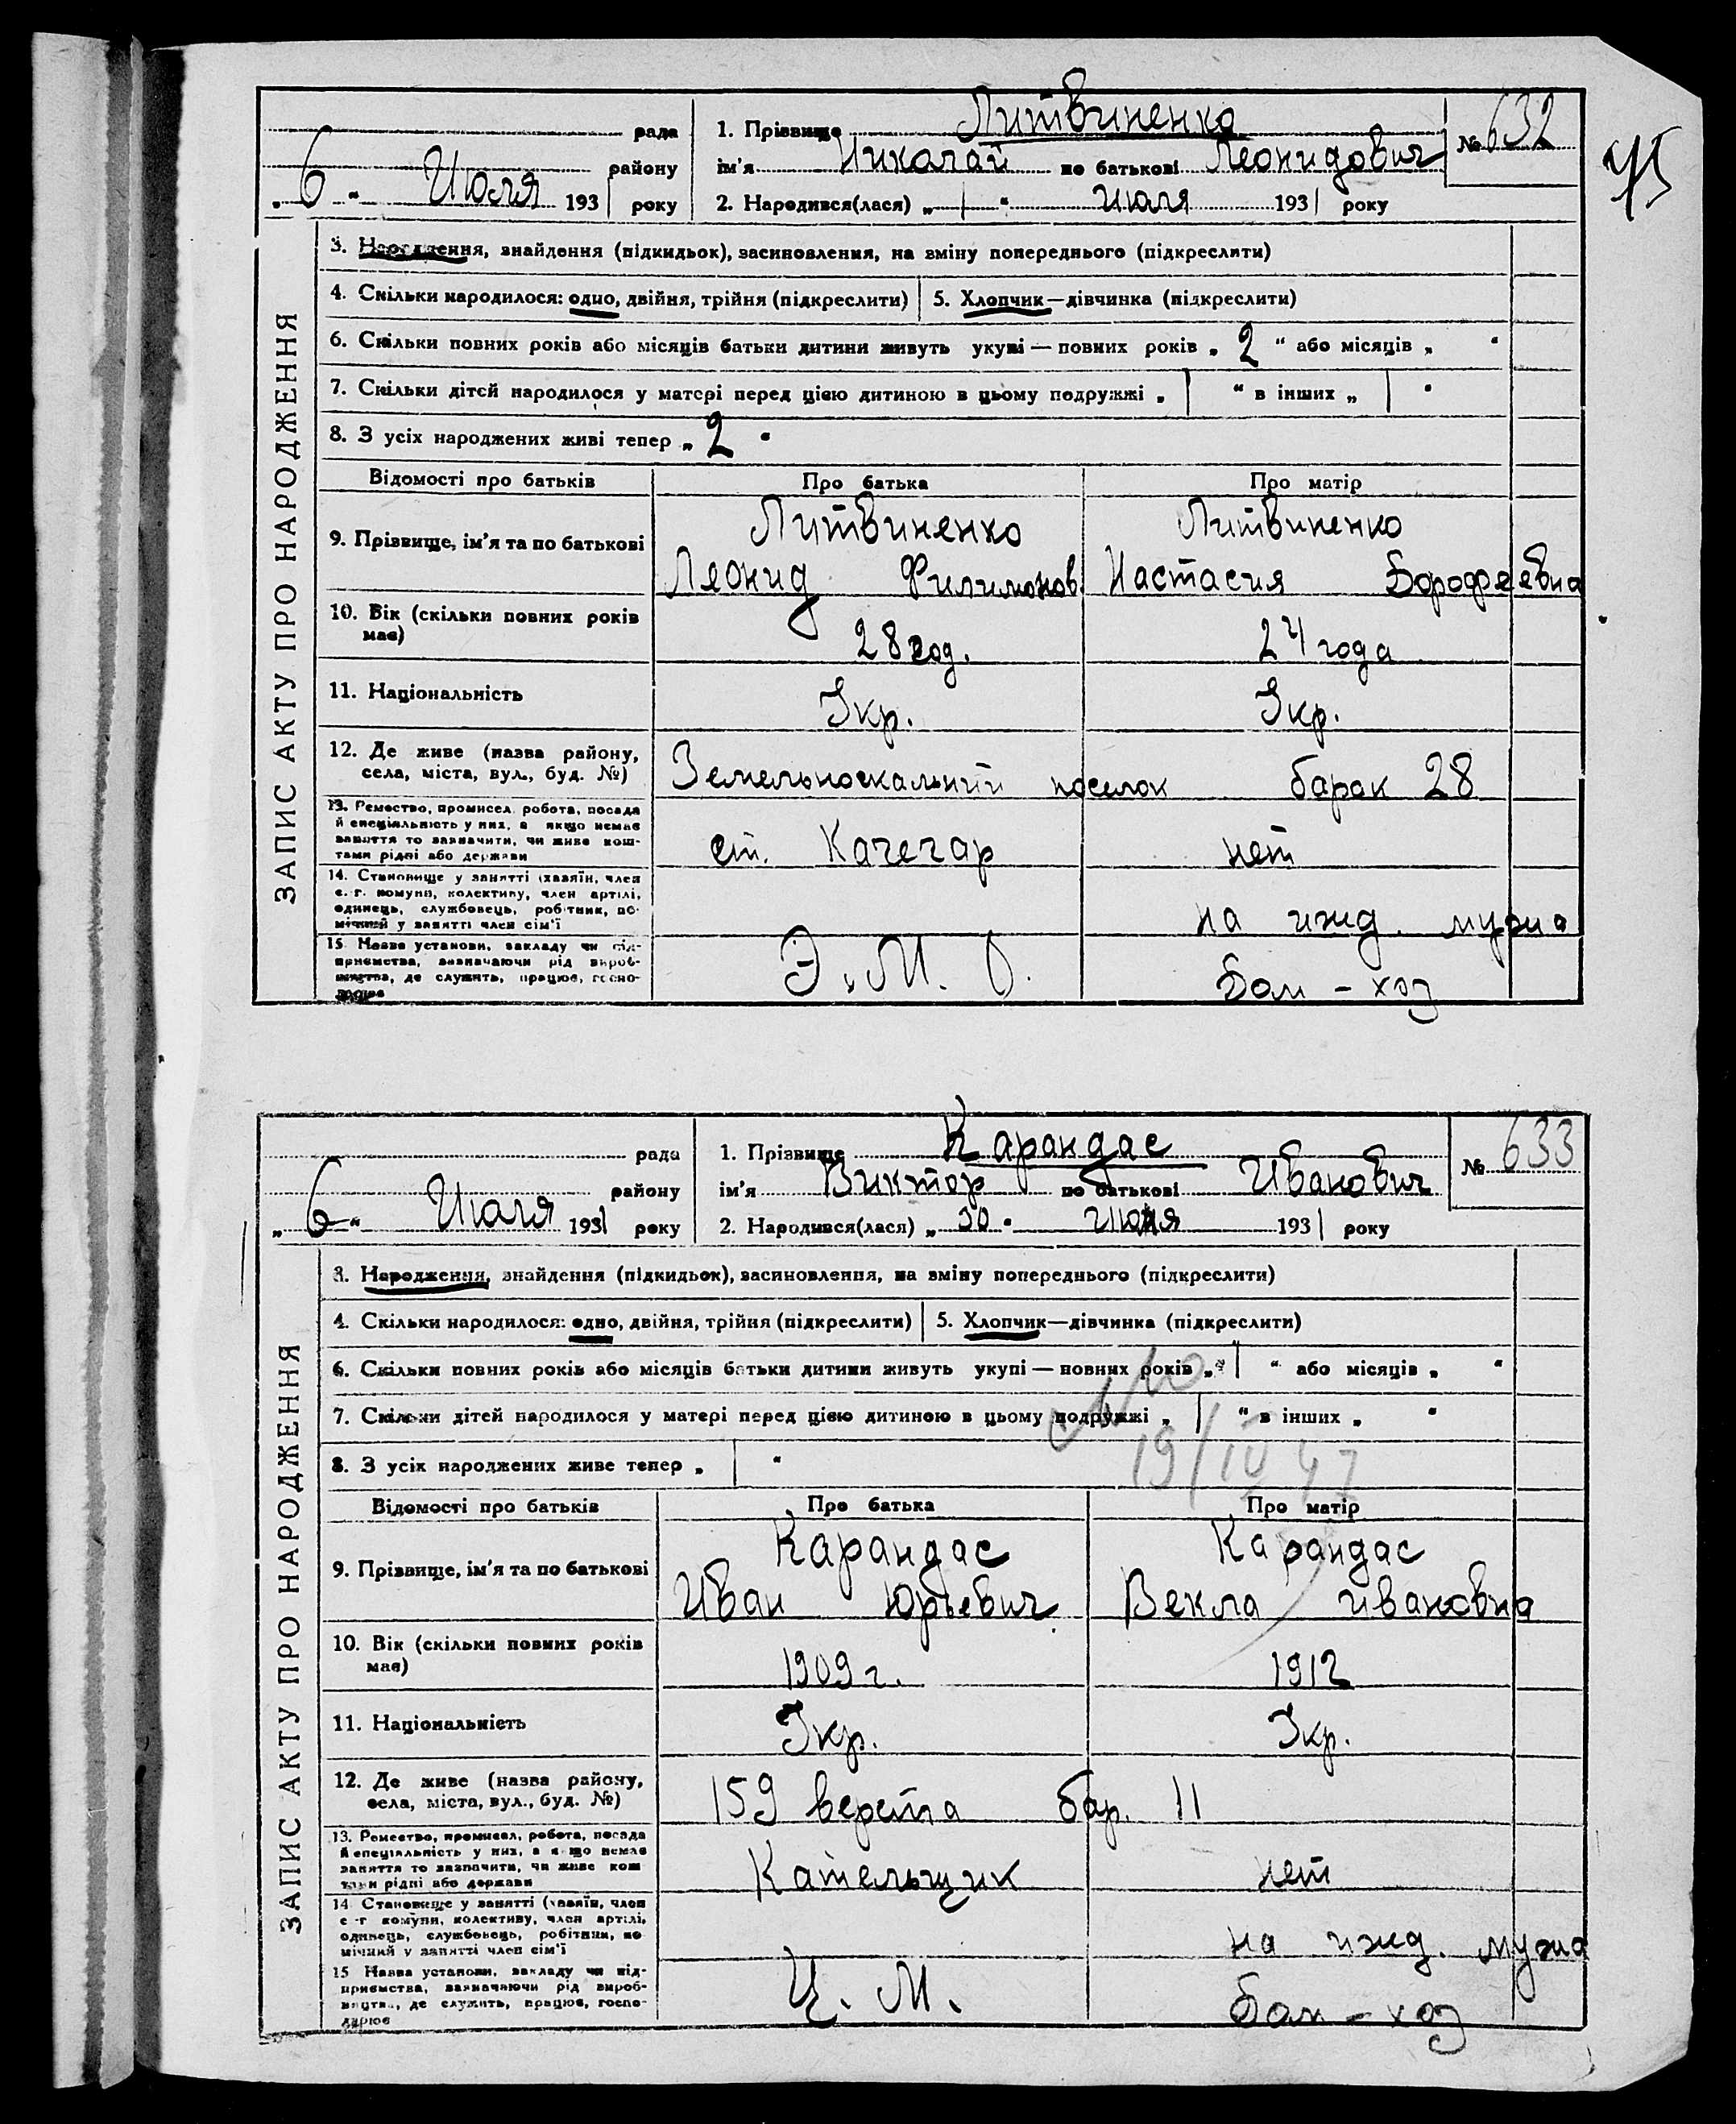 рада
району
„6“ Июля 1931 року
1. Прізвище Литвиненко
ім'я Николай по батькові Леонидович
2. Народився(лася) „1“ июля 1931 року
№ 632
45
ЗАПИС АКТУ ПРО НАРОДЖЕННЯ
3. Народження, знайдення (підкидьок), засиновлення, на зміну попереднього (підкреслити)
4. Скільки народилося: одно, двійня, трійня (підкреслити) 5. Хлопчик—дівчинка (підкреслити)
6. Скільки повних років або місяців батьки дитини живуть укупі — повних років „2“ або місяців „ “
7. Скільки дітей народилося у матері перед цією дитиною в цьому подружжі „1“ в інших „1“
8. З усіх народжених живі тепер „2“
Відомості про батьків Про батька Про матір
9. Прізвище, ім'я та по батькові
Литвиненко Литвиненко
Леонид Филимонов. Настасия Дорофеевна
10. Вік (скільки повних років має)
28 год. 24 года
11. Національність Укр. Укр.
12. Де живе (назва району,
села, міста, вул., буд. №)
поселок барак 28
13. Ремество, промисел, робота, посада
й специіяльність у них, а якщо немає
заняття то зазначити, чи живе кош-
тами рідні або держави
ст. Качегар нет
14. Становище у занятті (хазяїн, член
с.-г. комуни, колективу, член артілі,
одинець, службовець, робітник, по-
мічний у занятті член сім'ї
на ижд. мужа
15. Назва установи, закладу чи під-
приємства, зазначаючи рід вироб-
ництва, де служить, працює, госпо-
дарює
Э. М. О. Дом - хоз
рада
району
„6“ Июля 1931 року
1. Прізвище Карандас
ім'я Виктор по батькові Иванович
2. Народився(лася) „30“ июня 1931 року
№ 633
ЗАПИС АКТУ ПРО НАРОДЖЕННЯ
3. Народження, знайдення (підкидьок), засиновлення, на зміну попереднього (підкреслити)
4. Скільки народилося: одно, двійня, трійня (підкреслити) 5. Хлопчик—дівчинка (підкреслити)
6. Скільки повних років або місяців батьки дитини живуть укупі — повних років „1“ або місяців „ “
7. Скільки дітей народилося у матері перед цією дитиною в цьому подружжі „1“ в інших „ “
19/IV 47
8. З усіх народжених живе тепер „1“
Відомості про батьків Про батька Про матір
9. Прізвище, ім'я та по батькові
Карандас Карандас
Иван Юрьевич Векла ивановна
10. Вік (скільки повних років має)
1909 г. 1912
11. Національність Укр. Укр.
12. Де живе (назва району,
села, міста, вул., буд. №)
159 верста бар. 11
13. Ремество, промисел, робота, посада
й специіяльність у них, а якщо немає
заняття то зазначити, чи живе кош
тами рідні або держави
Кательщик нет
14. Становище у занятті (хазяїн, член
с-г комуни, колективу, член артілі,
одинець, службовець, робітник, по
мічний у занятті член сім'ї
на ижд. мужа
15 Назва установи, закладу чи під-
приємства, зазначаючи рід вироб-
ництва, де служить, працює, госпо-
дарює
Ц. М. Дом - хоз